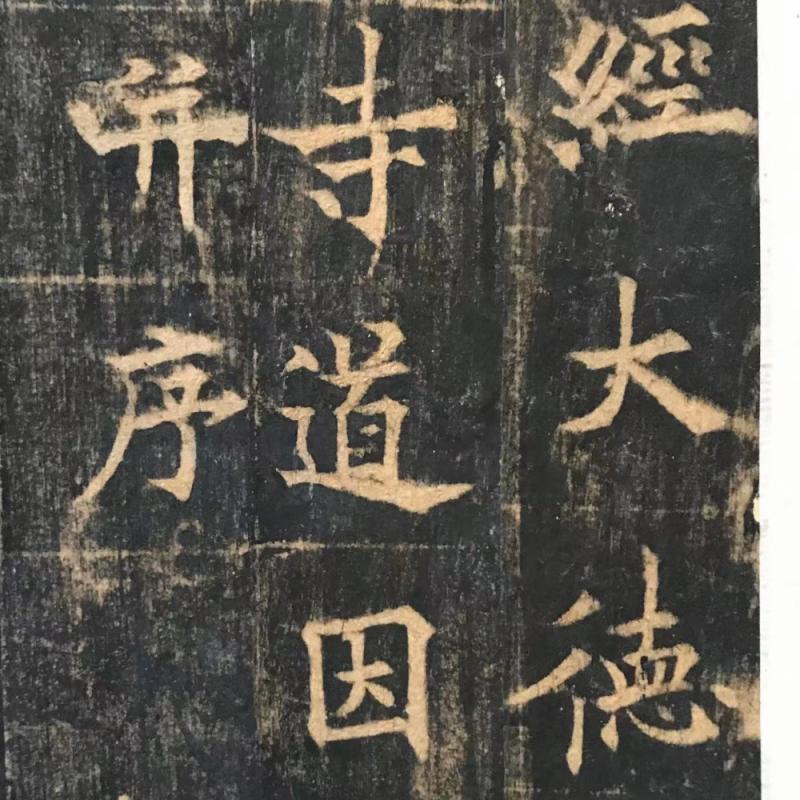 經大德
寺道因
并序